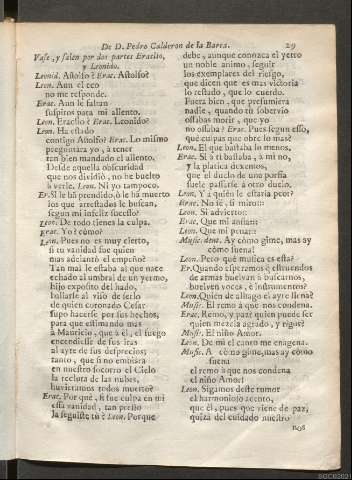 De D. Pedro Calderon de la Barca. 29
Vase, y salen por dos partes Eraclio,
y Leonido.
Leonid. Astolfo? Erac. Astolfo?
Leon. Aun el eco
no me responde.
Erac. Aun le faltan
suspiros para mi aliento.
Leon. Eraclio? Erac. Leonido?
Leon. Ha estado
contigo Astolfo? Erac. Lo mismo
preguntára yo, à tener
tan bien mandado el aliento.
Desde aquella obscuridad
que nos dividiò, no he buelto
à verle. Leon. Ni yo tampoco.
Er. Si le hã prendido, ò le hã muerto
los que arrestados le buscan,
segun mi infeliz sucesso?
Leon. De todo tienes la culpa.
Erac. Yo? còmo?
Leon. Pues no es muy cierto,
si tu vanidad fue quien
mas adelantò el empeño?
Tan mal le estaba al que nace
echado al umbral de un yermo,
hijo exposito del hado,
hallarse al viso de serlo
de quien coronado Cesar
supo hacerse por sus hechos,
para que estimando mas
à Mauricio, que à èl, el fuego
encendiesse de sus iras
al ayre de sus desprecios;
tanto, que si no embiàra
en nuestro socorro el Cielo
la recluta de las nubes,
huvieramos todos muerto?
Erac. Por què, si fue culpa en mi
essa vanidad, tan presto
la seguiste tù? Leon. Porque
debe, aunque conozca el yerro
un noble animo, seguir
los exemplares del riesgo,
que dicen que es mas victoria
lo restado, que lo cuerdo.
Fuera bien, que presumiera
nadie, quando tu sobervio
ossabas morir, que yo
no ossaba? Erac. Pues segun esso,
què culpas que obre lo mas?
Leon. El que bastaba lo menos.
Erac. Si à ti bastaba, à mi no,
y la platica dexemos,
que el duelo de una porfia
suele passarse à otro duelo.
Leon. Y à quièn le estaria peor?
Erac. No sè, si miro::
Leon. Si advierto::
Erac. Que mi ansia::
Leon. Que mi pena::
Music. dent. Ay còmo gime, mas ay
còmo suena!
Leon. Pero què musica es esta?
Er. Quando esperamos q̃ estruendos
de armas buelvan à buscarnos,
buelven voces, è instrumentos?
Leon. Quièn de alhago el ayre llena?
Music. El remo à que nos condena.
Erac. Remo, y paz? quien puede ser
quien mezcla agrado, y rigor?
Music. El niño Amor.
Leon. De mi el canto me enagena.
Music. Ay còmo gime, mas ay còmo
suena
el remo à que nos condena
el niño Amor!
Leon. Sigamos deste rumor
el harmonioso acento,
que èl, pues que viene de paz,
quizà del cuidado nuestro
nos